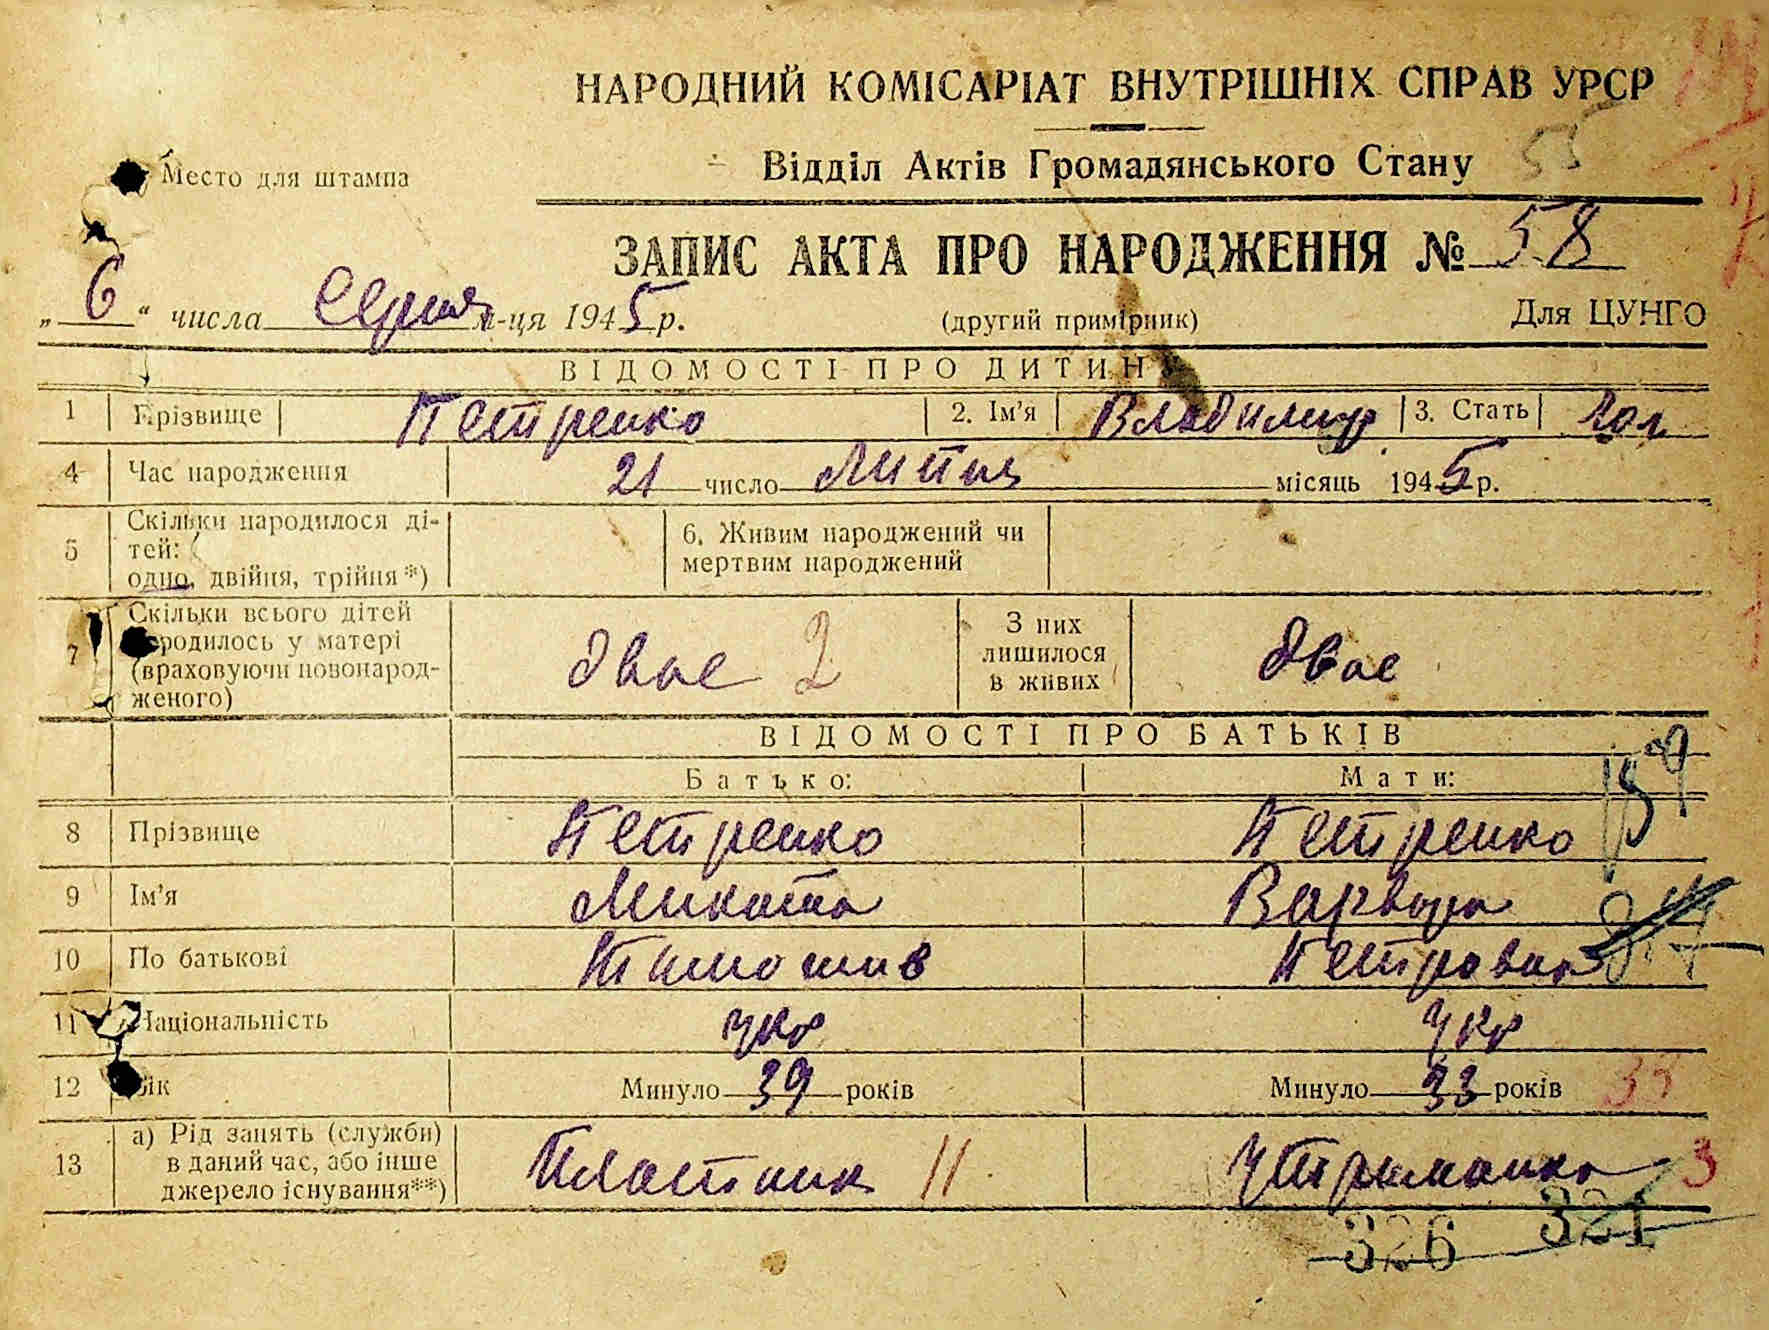 НАРОДНИЙ КОМІСАРІАТ ВНУТРІШНІХ СПРАВ УРСР
Место для штампа
Відділ Актів Громадянського Стану 55
ЗАПИС АКТА ПРО НАРОДЖЕННЯ № 58
„6“ числа Серпня м-ця 1945 р. (другий примірник) Для ЦУНГО
ВІДОМОСТІ ПРО ДИТИНУ
1 Прізвище Петренко 2. Ім'я Владимир 3. Стать чол
4 Час народження 21 число Липня місяць 1945 р.
5 Скільки народилося ді-
тей:
одно, двійня, трійня*)
6. Живим народжений чи
мертвим народжений
7 Скільки всього дітей
народилось у матері
(враховуючи новонарод-
женого)
двое 2
З них
лишилося
в живих
двое
ВІДОМОСТІ ПРО БАТЬКІВ
Батько: Мати:
8 Прізвище Петренко Петренко
9 Ім'я Микита Варвара
10 По батькові Тимошив Петровна
11 Національність укр укр
12 Вік Минуло 39 років Минуло 33 років 33
13 а) Рід занять (служби)
в даний час, або інше
джерело існування**)
Плотник 11 Утриманка 3
326 321